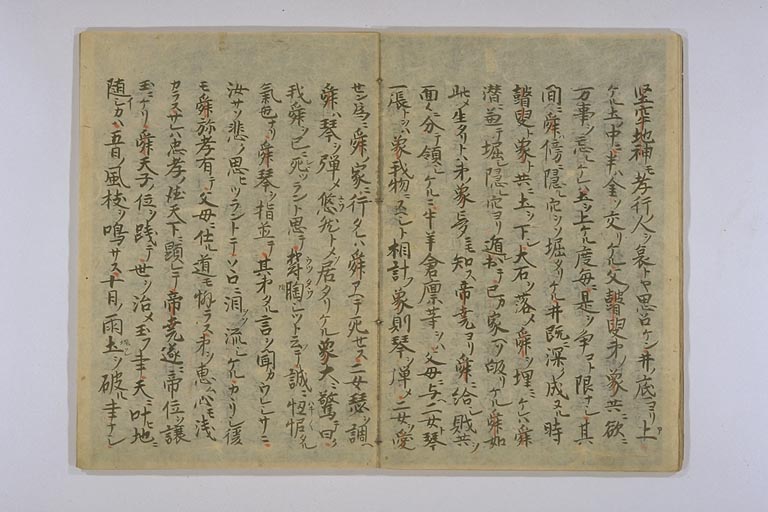 堅牢地神モ孝行ノ人ヲ哀トヤ思召ケン井ノ底ヨリ上
ケル土ノ中ニ半ハ金ヲ交リケル父瞽叟弟ノ象共ニ欲ニ
万事ヲ忘ルケレハ土ヲ上ケル度毎ニ是ヲ争コト限ナシ其
間ニ舜傍ニ隠レ穴ヲソ堀タリケル井既ニ深ク成ヌル時
瞽叟ト象ト共ニ土ヲ下シ大石ヲ落メ舜ヲ埋ニケレハ舜
潜ニ並テ堀シ隠レ穴ヨリ遁出テ己カ家ヘソ皈リケル舜如
此メ生タリトハ弟象争カ知ヘキ帝堯ヨリ舜ニ給シ財共ヲ
面々ニ分テ領シケルニ牛羊倉廩等ヲハ父母ニ与ヘ二女ト琴
一張トハ象我物ニスヘシト相計フ象則琴ヲ弾メ二女ヲ愛
セン為ニ舜ノ家ニ行タレハ舜アヘテ死セス二女瑟ヲ調ヘ
舜ハ琴ヲ弾メ悠然トメ居タリケル象大ニ驚テ曰
我舜ヲ已ニ死ツラント思テ欝陶シツト云テ誠ニ忸怩タル
氣色ナリ舜琴ヲ指並テ其弟タル言ヲ聞カウレシサニ
汝サソ悲ク思ヒツラントテソヽロニ泪ヲ流シケルカヽリシ後
モ舜弥孝有テ父母ニ仕ル道モ怠ラス弟ヲ恵ム心モ浅
カラスサレハ忠孝ノ徳天下ニ顕レテ帝堯遂ニ帝位ヲ譲
玉ニケリ舜天子ノ位ヲ践テ世ヲ治メ玉フ事天ニ叶ヒ地ニ
随シカハ五日ノ風枝ヲ鳴サス十日ノ雨土ヲ破ル事ナシ